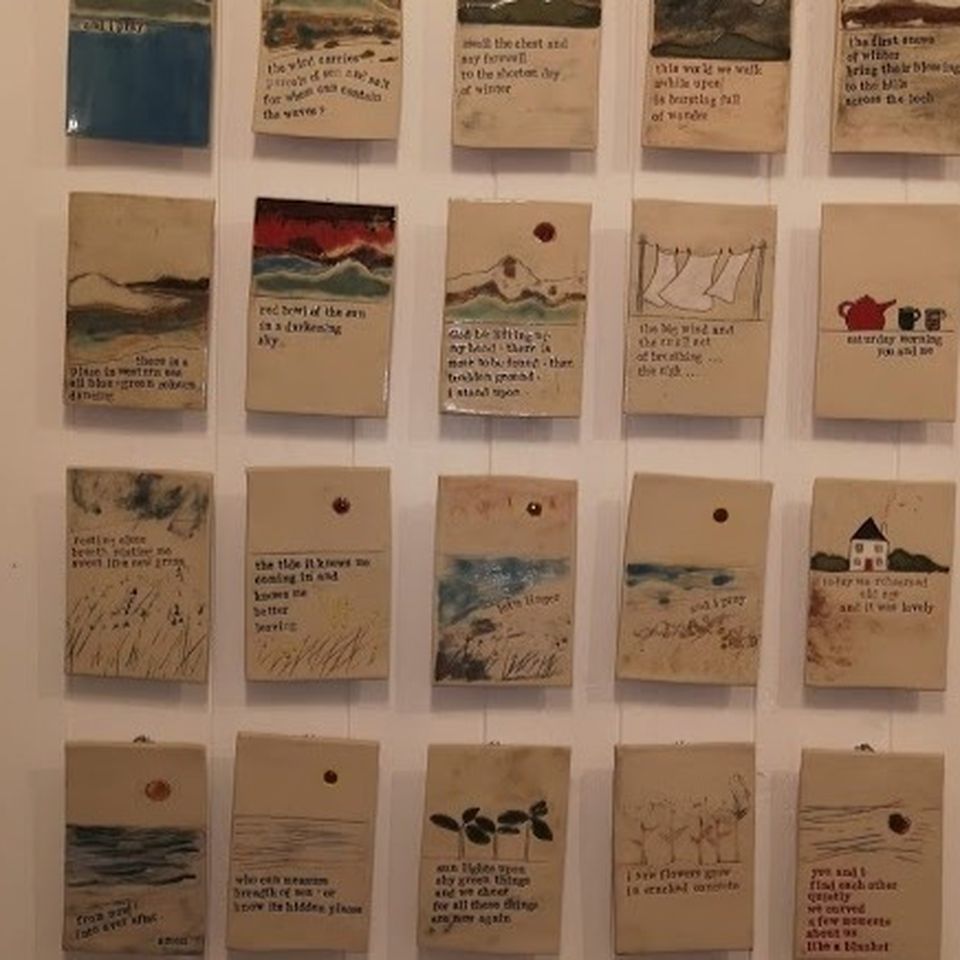 and i pray
the wind carries
parcels of sun and salt
for whom can contain
the waves?
swell the chest and
say farewell
to the shortest day
of winter
this world we walk
awhile upon
is bursting full
of wonder
the first snows
of winter
bring their blessing
to the hills
across the loch
there is a
place in western sea
all blue-green colours
dancing
red bowl of the sun
in a darkening
sky
my hand - there is
more to be found - than
trodden ground -
i stand upon
the big wind and
the
of breathing ...
the sigh ...
saturday morning
you and me
resting alone
breath
sweet like new grass
the tide it knows me
coming in and
knows me
better
leaving
let's linger
and i pray
today we rehearsed
old age
and it was lovely
from now i
into ever after
amen
who can measure
breadth of sea - or
know its hidden places
sun lights upon
shy green things
and we cheer
for all these things
are new again
i saw flowers grow
in cracked concrete
you and i
find each other
quietly
we carved
a few moments
about us
like a blanket